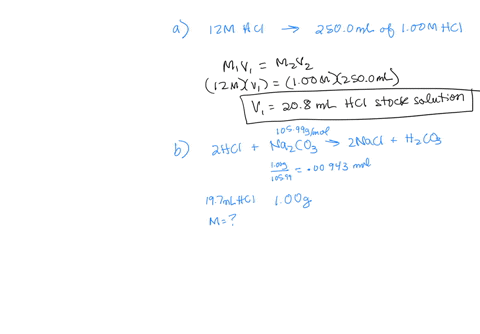 a) 12M HCl → 250.0mL of 1.00M HCl
M₁V₁ = M₂V₂
(12M)(V₁) = (1.00M)(250.0mL)
V₁ = 20.8 mL HCl stock solution
105.99g/mol
b) 2HCl + Na₂CO₃ → 2NaCl + H₂CO₃
1.00g/105.99 = .00943 mol
19.7mL HCl 1.00g
M = ?